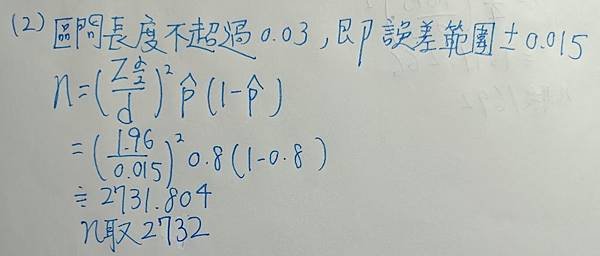 (2) 區間長度不超過0.03,即誤差範圍±0.015
n=(Z_{α/2}/d)² p̂(1-p̂)
=(1.96/0.015)² 0.8(1-0.8)
≒2731.804
n取2732